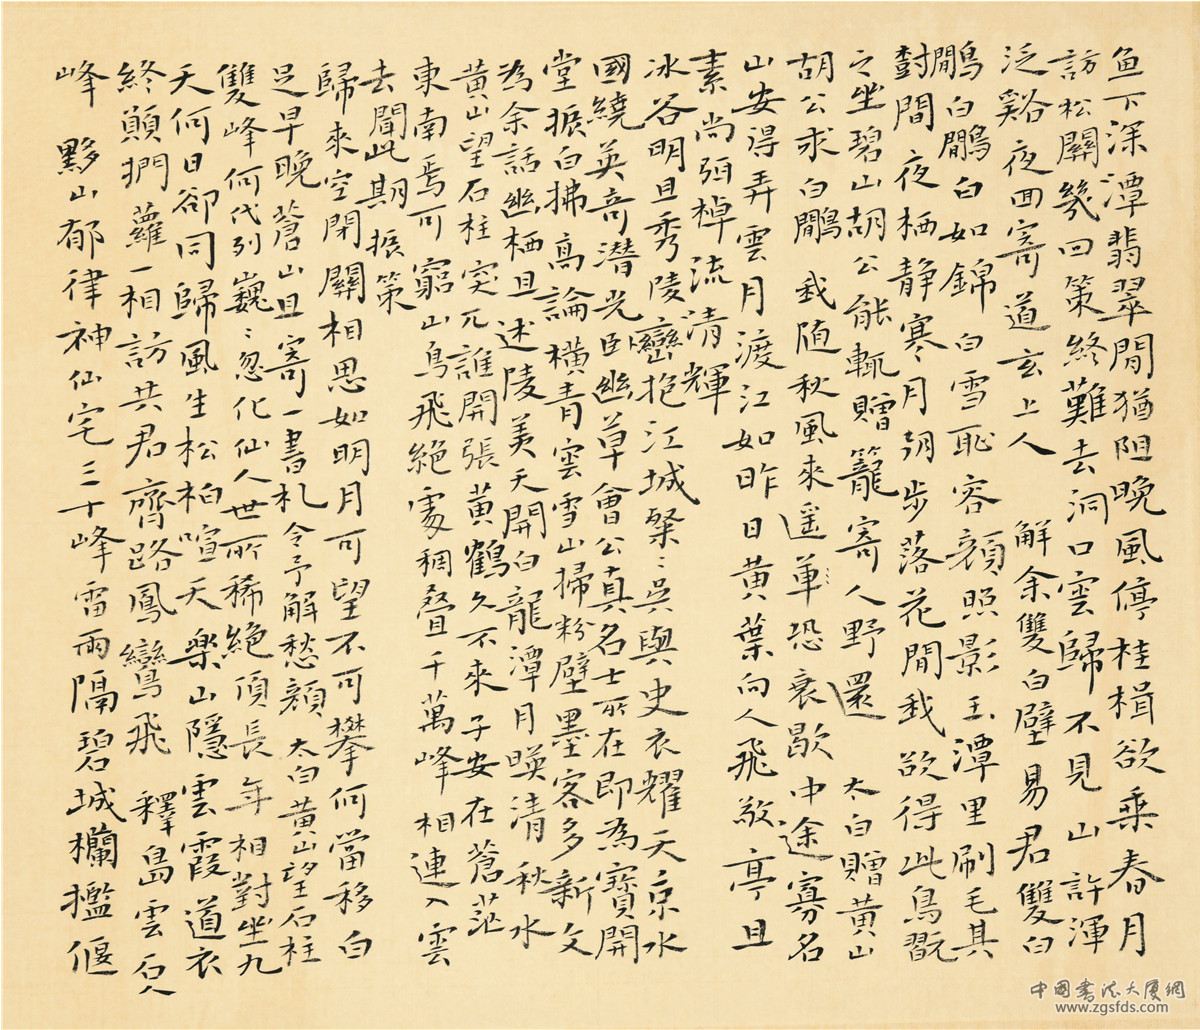 鱼下深潭翡翠閒猶阻晚風停桂楫欲乘春月
訪松關幾回策終難去洞口雲歸不見山 許渾
泛谿夜回寄道玄上人 解余雙白璧易君雙白
鷳白鷳白如錦白雪恥容顏照影玉潭里刷毛其
樹間夜栖静寒月朝步落花閒我欲得此鳥翫
之坐碧山胡公能輒贈籠寄人野還 太白贈黃山
胡公求白鷳 我随秋風來遥草恐衰歇中途寡名
山安得弄雲月渡江如昨日黃葉向人飛敬亭且
素尚弭棹流清輝
冰谷明且秀陵巒抱江城粲々吳與史衣耀天京水
國繞英奇潜光卧幽草會公真名士所在即為寶開
堂振白拂高論橫青雲雪山掃粉壁墨客多新文
為余話幽栖且述陵美天開白龍潭月暎清秋水
黃山望石柱突兀誰開張黃鶴久不來子安在蒼茫
東南焉可窮山鳥飛絕處稠疊千萬峰相連入雲
去聞此期振策
歸來空閉關相思如明月可望不可攀何當移白
足早晚蒼山且寄一書札令予解愁顏 太白黃山望石柱
雙峰何代列巍々忽化仙人世所稀絕頂長年相對坐九
天何日卻同歸風生松柏喧天樂山隱雲霞道衣
終願捫蘿一相訪共君齊路鳳鸞飛 釋島雲石人
峰 黟山郁律神仙宅三十峰雷雨隔碧城欄檻偃
中国書法大厦網
www.zgsfds.com